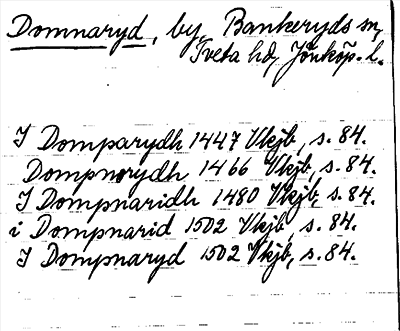 Domnaryd, by, Bankeryds sn,
Tveta hd, Jönköp. l.
I Domparydh 1447 Vkjb, s. 84.
Dompnorydh 1466 Vkjb, s. 84.
I Dompnaridh 1480 Vkjb, s. 84.
i Dompnarid 1502 Vkjb, s. 84.
I Dompnaryd 1502 Vkjb, s. 84.